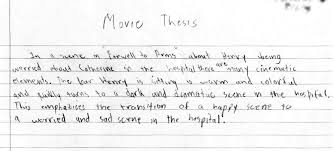 Movie Thesis
In a scene in "Farwell to Arms" about Henry being
worried about Catherine in the hospital there are many cinematic
elements. The bar Henry is sitting is warm and colorful
and quikly turns to a dark and dramatic scene in the hospital.
This emphasises the transition of a happy scene to
a worried and sad scene in the hospital.